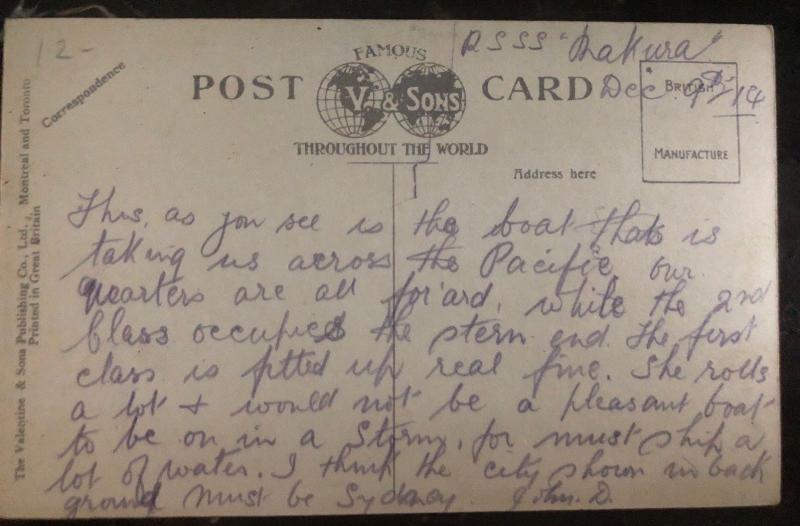 12-
R S S S "Makura"
Dec 9th/14
Correspondence
FAMOUS
POST CARD
V. & SONS
THROUGHOUT THE WORLD
Address here
BRITISH
MANUFACTURE
The Valentine & Sons Publishing Co., Ltd., Montreal and Toronto
Printed in Great Britain
This, as you see is the boat thats is
taking us across the Pacific, our
quarters are all for'ard, while the 2nd
Class occupied the stern end. The first
class is fitted up real fine. She rolls
a lot & would not be a pleasant boat
to be on in a Storm, for must ship a
lot of water. I think the city shown in back
ground must be Sydney John. D.